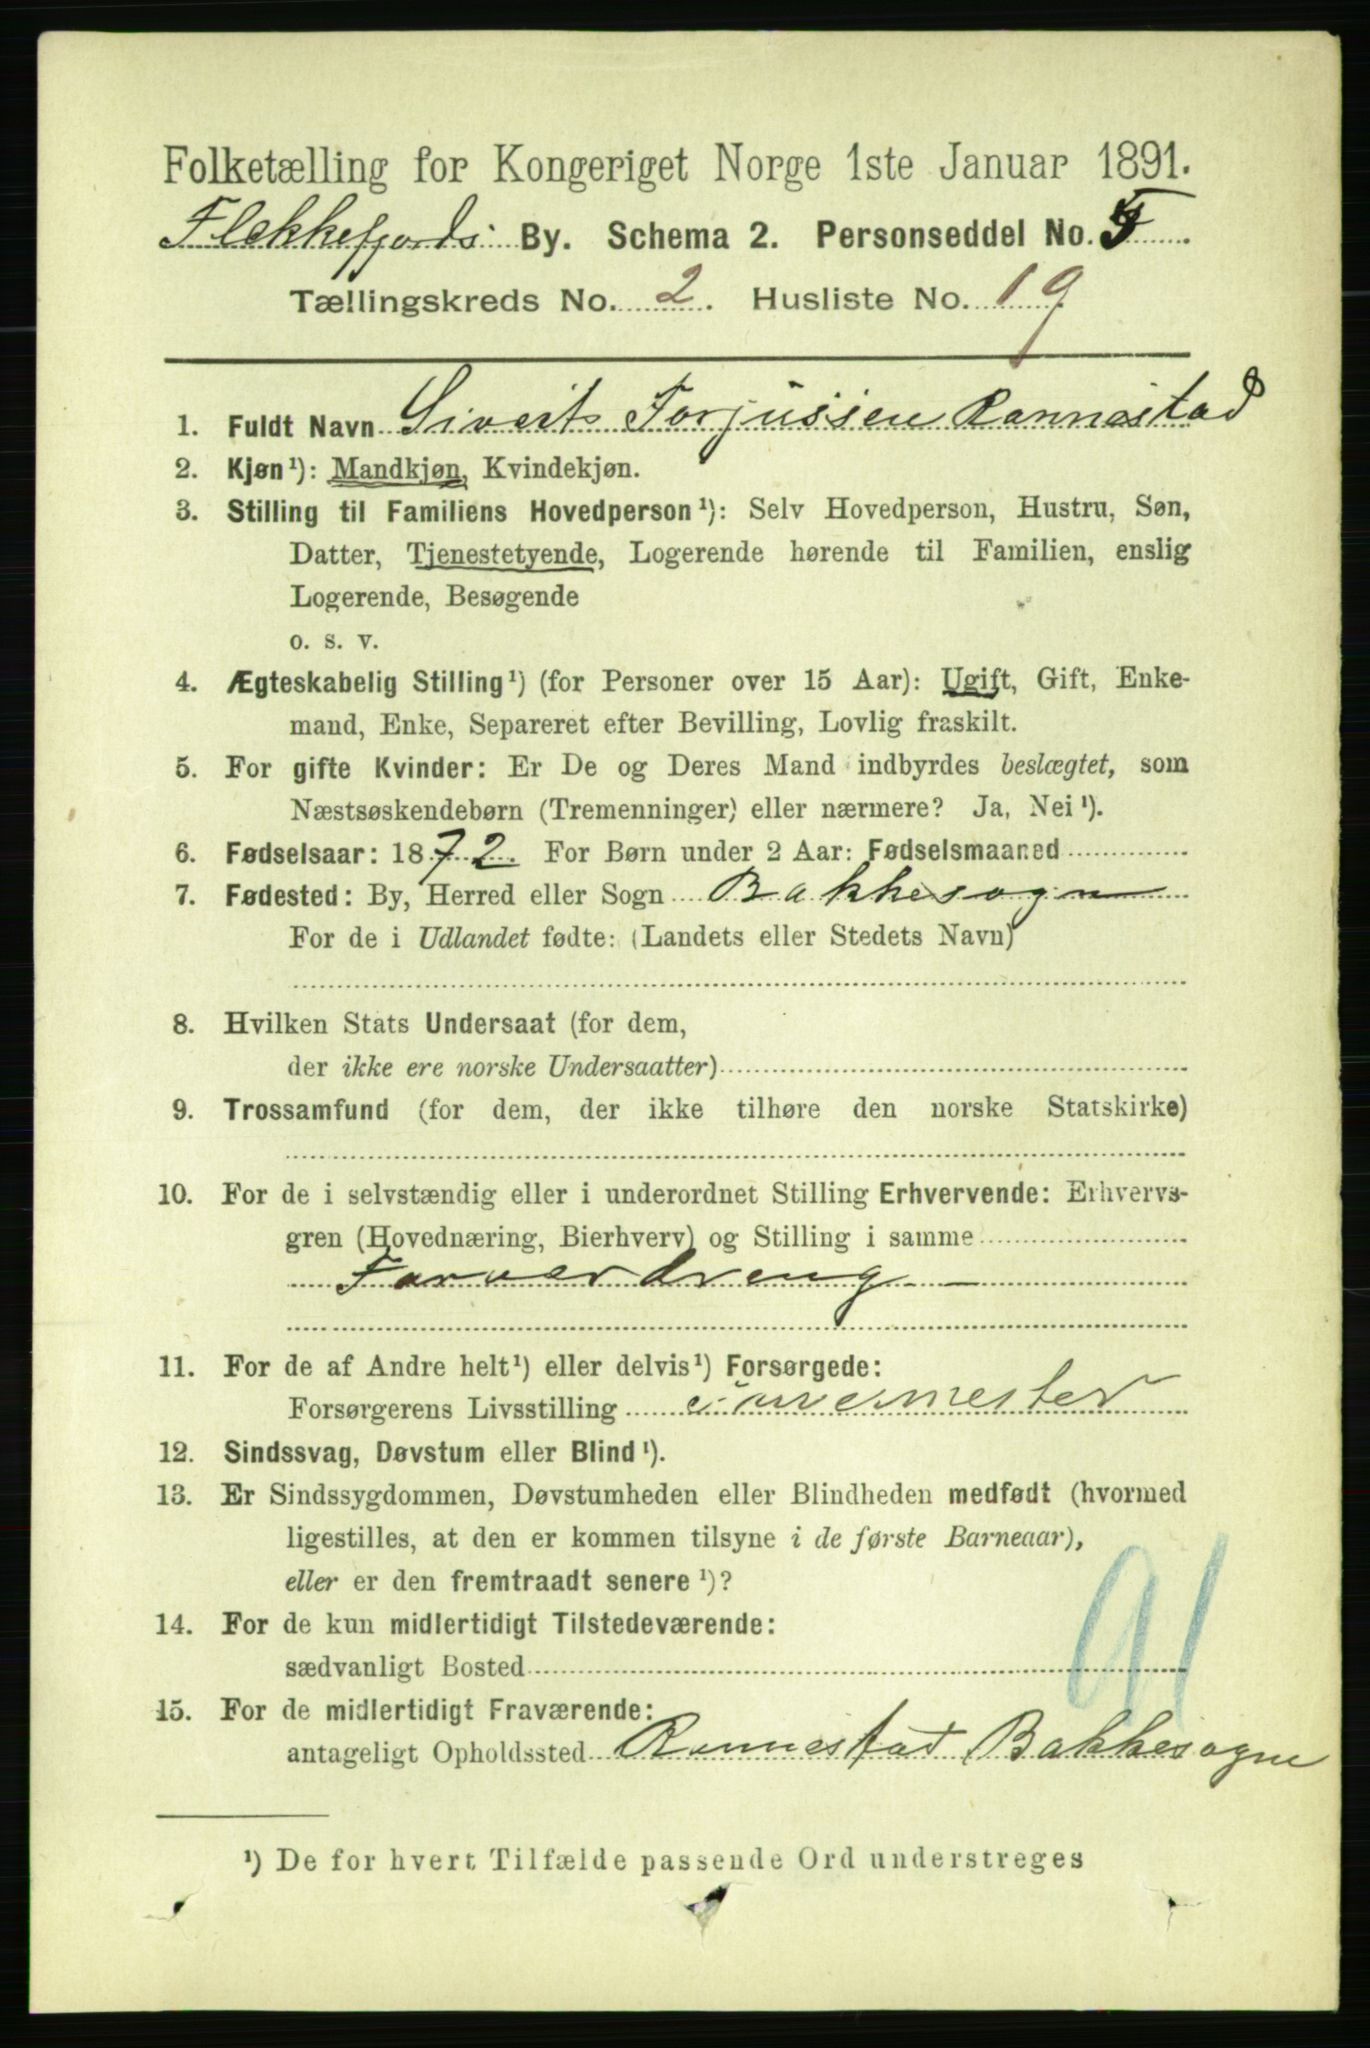 Folketælling for Kongeriget Norge 1ste Januar 1891.
Flekkefjords By. Schema 2. Personseddel No. 5
Tællingskreds No. 2. Husliste No. 19
1. Fuldt Navn Sivert Torjussen Rannestad
2. Kjøn¹): Mandkjøn, Kvindekjøn.
3. Stilling til Familiens Hovedperson¹): Selv Hovedperson, Hustru, Søn,
Datter, Tjenestetyende, Logerende hørende til Familien, enslig
Logerende, Besøgende
o. s. v.
4. Ægteskabelig Stilling¹) (for Personer over 15 Aar): Ugift, Gift, Enke-
mand, Enke, Separeret efter Bevilling, Lovlig fraskilt.
5. For gifte Kvinder: Er De og Deres Mand indbyrdes beslægtet, som
Næstsøskendebørn (Tremenninger) eller nærmere? Ja, Nei¹).
6. Fødselsaar: 1872. For Børn under 2 Aar: Fødselsmaaned
7. Fødested: By, Herred eller Sogn Bakkesogn
For de i Udlandet fødte: (Landets eller Stedets Navn)
8. Hvilken Stats Undersaat (for dem,
der ikke ere norske Undersaatter)
9. Trossamfund (for dem, der ikke tilhøre den norske Statskirke)
10. For de i selvstændig eller i underordnet Stilling Erhvervende: Erhvervs-
gren (Hovednæring, Bierhverv) og Stilling i samme
Farverdreng
11. For de af Andre helt¹) eller delvis¹) Forsørgede:
Forsørgerens Livsstilling Farvermester
12. Sindssvag, Døvstum eller Blind¹).
13. Er Sindssygdommen, Døvstumheden eller Blindheden medfødt (hvormed
ligestilles, at den er kommen tilsyne i de første Barneaar),
eller er den fremtraadt senere¹)?
14. For de kun midlertidigt Tilstedeværende:
sædvanligt Bosted
91
15. For de midlertidigt Fraværende:
antageligt Opholdssted Rannestad Bakkesogn
¹) De for hvert Tilfælde passende Ord understreges